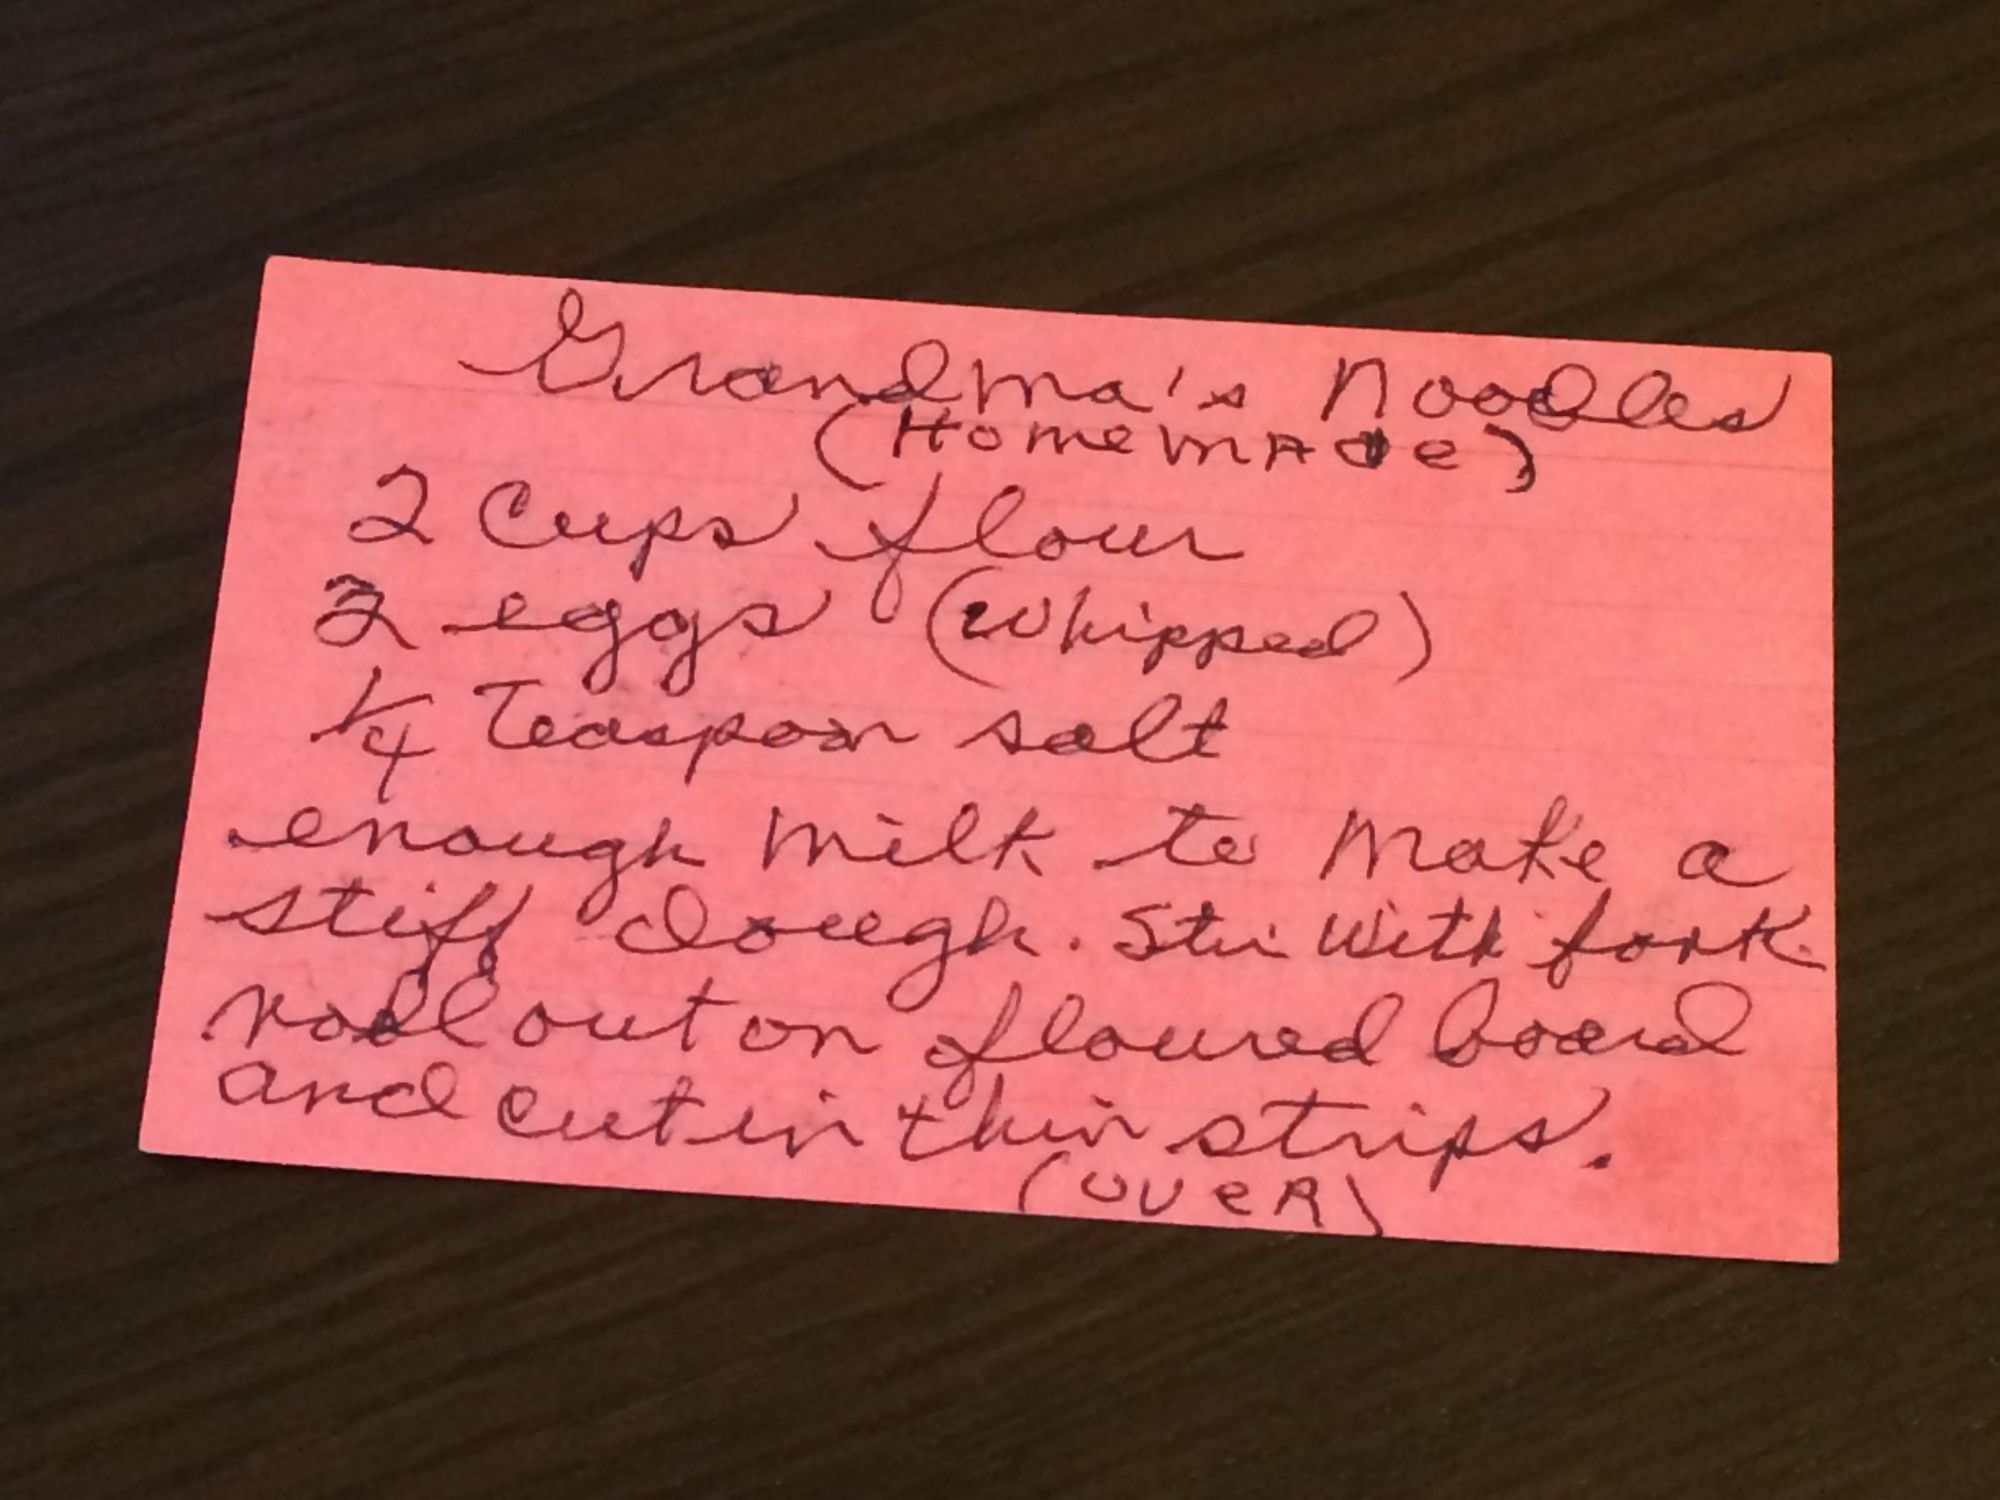 Grandma's Noodles
(HomemAde)
2 Cups flour
eggs (whipped)
1/4 Teaspoon salt
enough milk to make a
stiff dough. Stir with fork.
roll out on floured board
and cut in thin strips.
(OVeR)